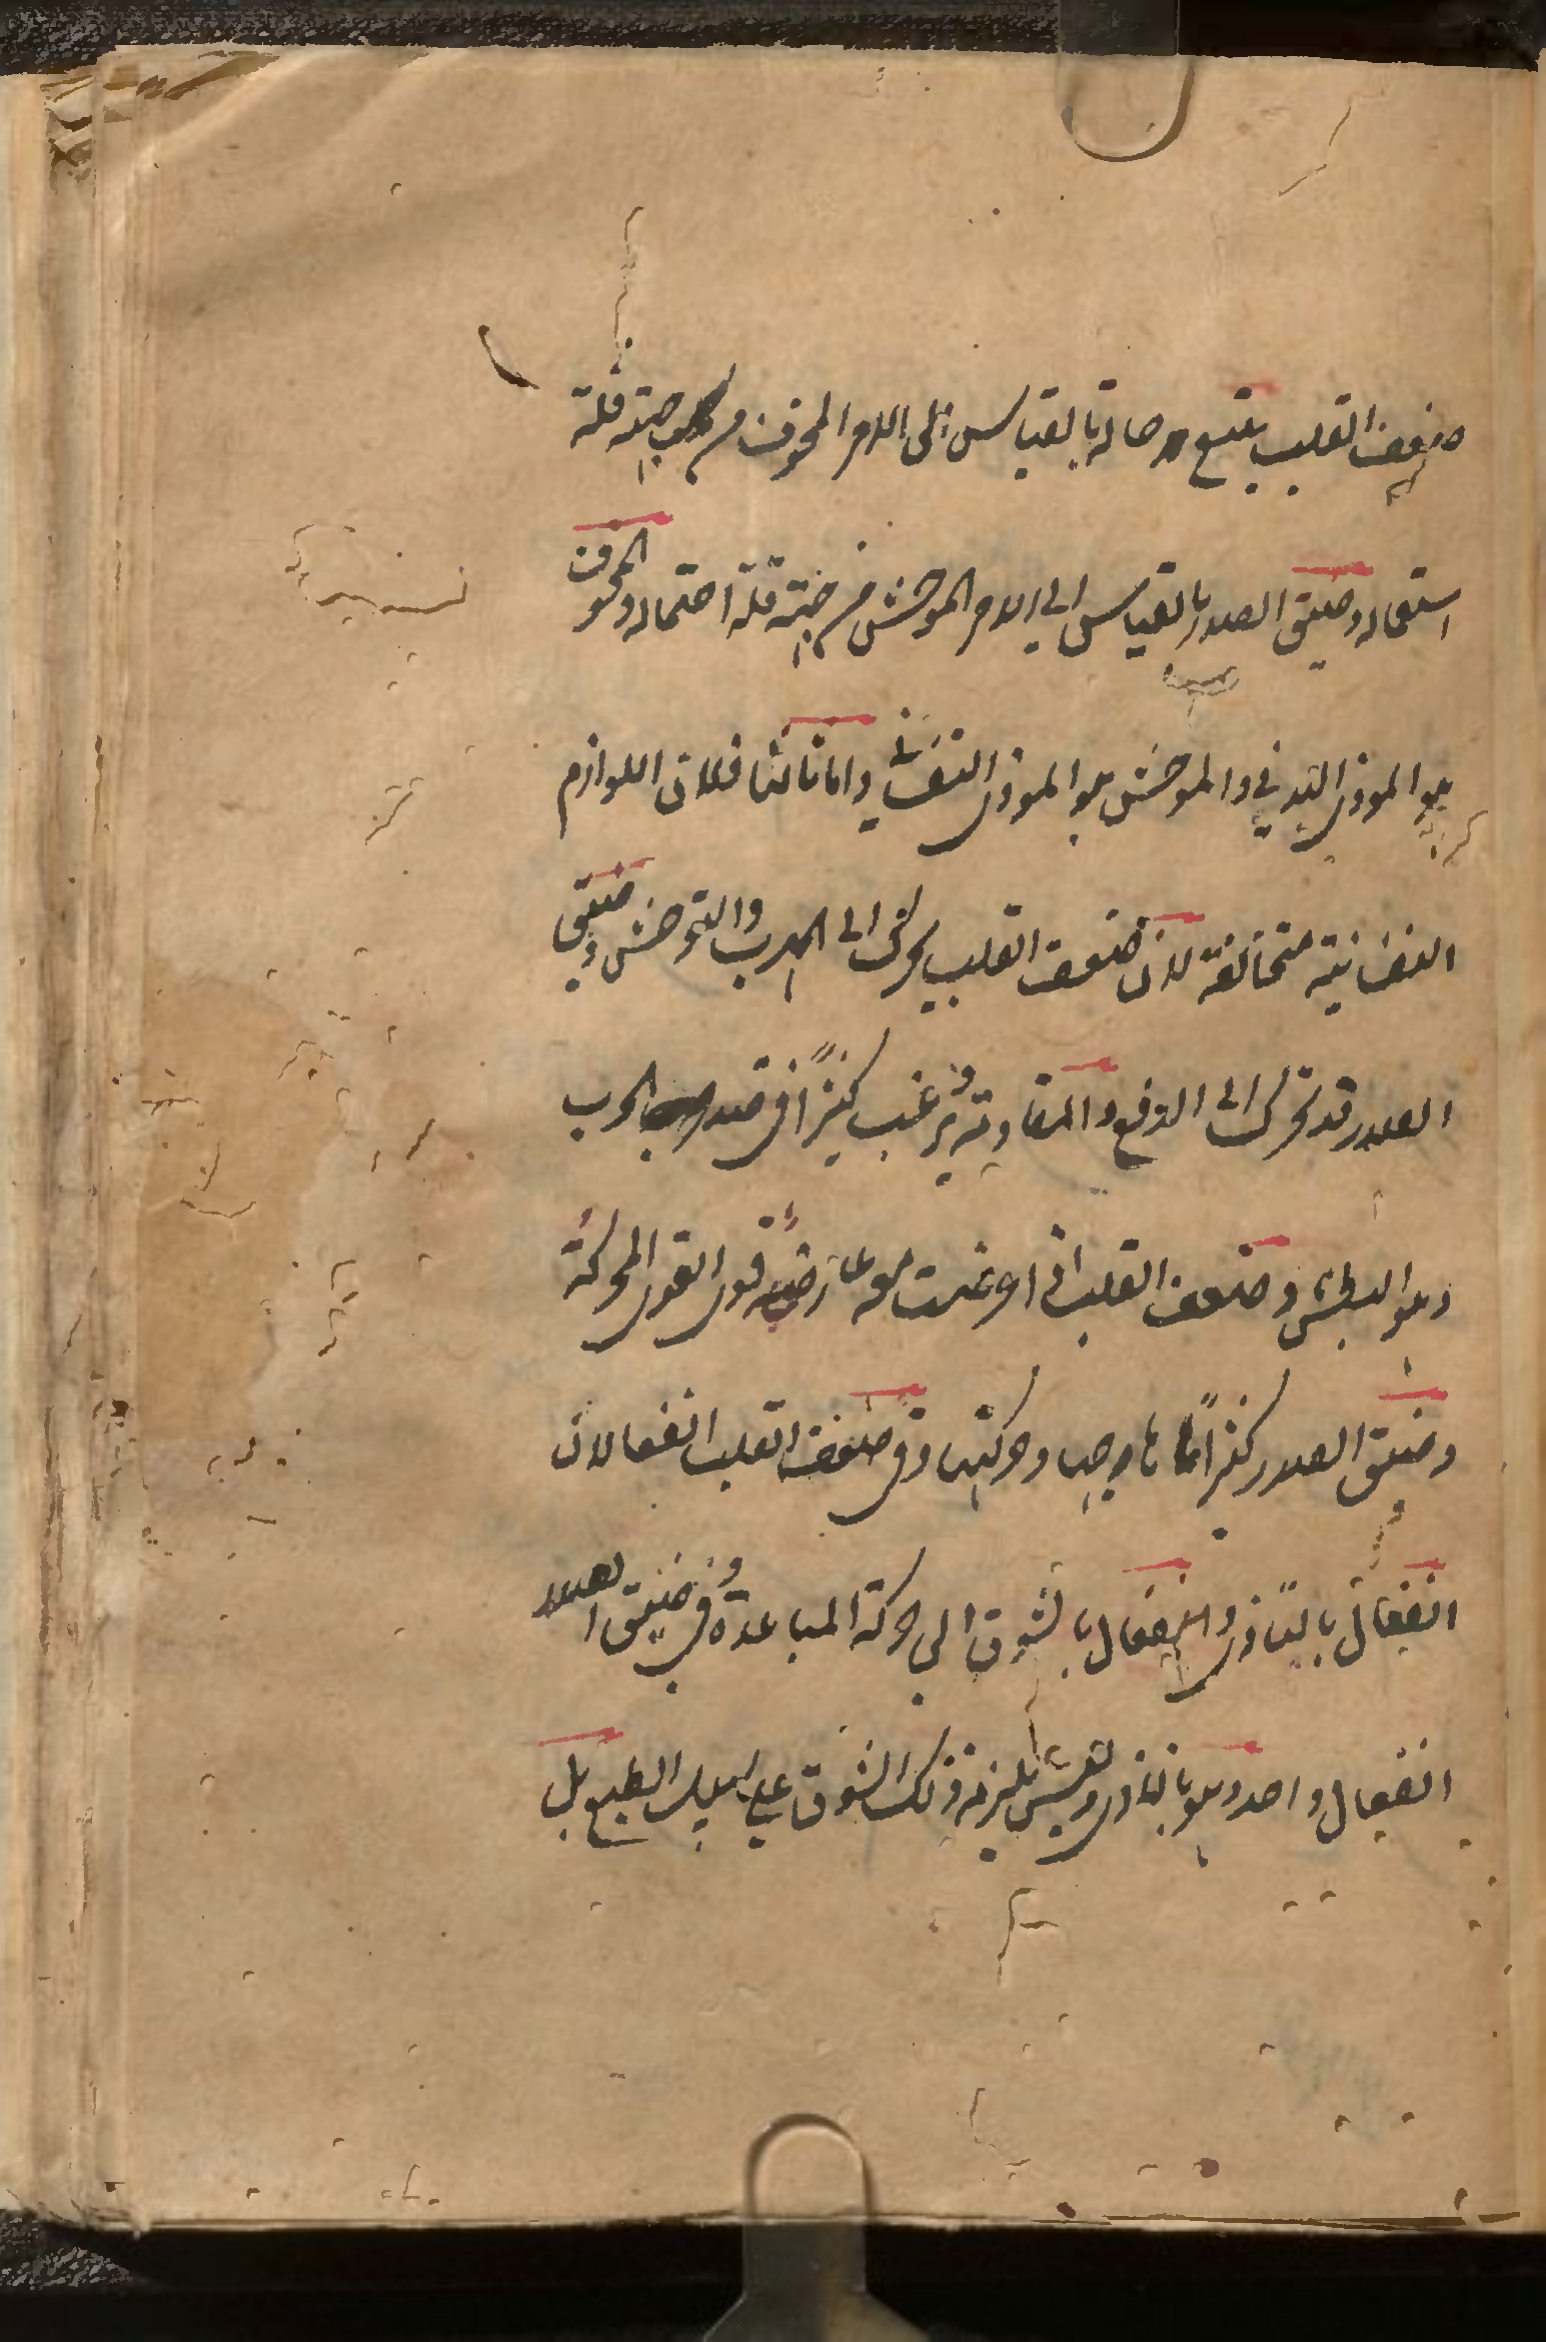 ضعف القلب يتبع حالة بالقياس الى الامر المخوف من جهة قلة
استعماله وضيق الصدر بالقياس الى الامر الموحش من جهة قلة احتماله والمخوف
هو الموذى البدنى والموحش هو الموذى النفسانى واما ثالثا فلان اللوازم
النفسانية متخالفة لان ضعف القلب يحرك الى الهرب والتوحش وضيق
الصدر قد يحرك الى الدفع والمقاومة ويرغب كثيرًا فى ضد الهرب
وهو البطش وضعف القلب اذا عرضت معه عارضة قوى القوى المحركة
وضيق الصدر كثيرًا ما يوجب وحركتها وفى ضعف القلب انفعالان
انفعال بالتاذى وانفعال بالشوق الى حركة المباعدة وفى ضيق الصدر
انفعال واحد وهو بالتاذى وليس يلزمه ذلك الشوق على سبيل الطبع بل